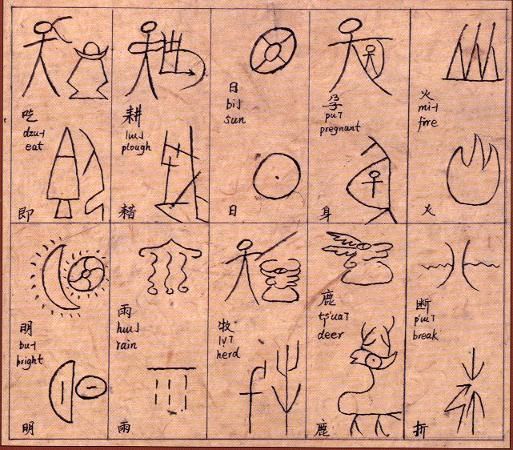 吃
dzɯ˧
eat
即
耕
lɯ˩
plough
耤
日
bi˩
sun
日
孕
pu˥
pregnant
身
火
mi˧
fire
火
明
bu˧
bright
明
雨
hɯ˩
rain
雨
牧
lv˥
herd
鹿
tʂʻua˥
deer
鹿
断
pʻɯ˥
break
折